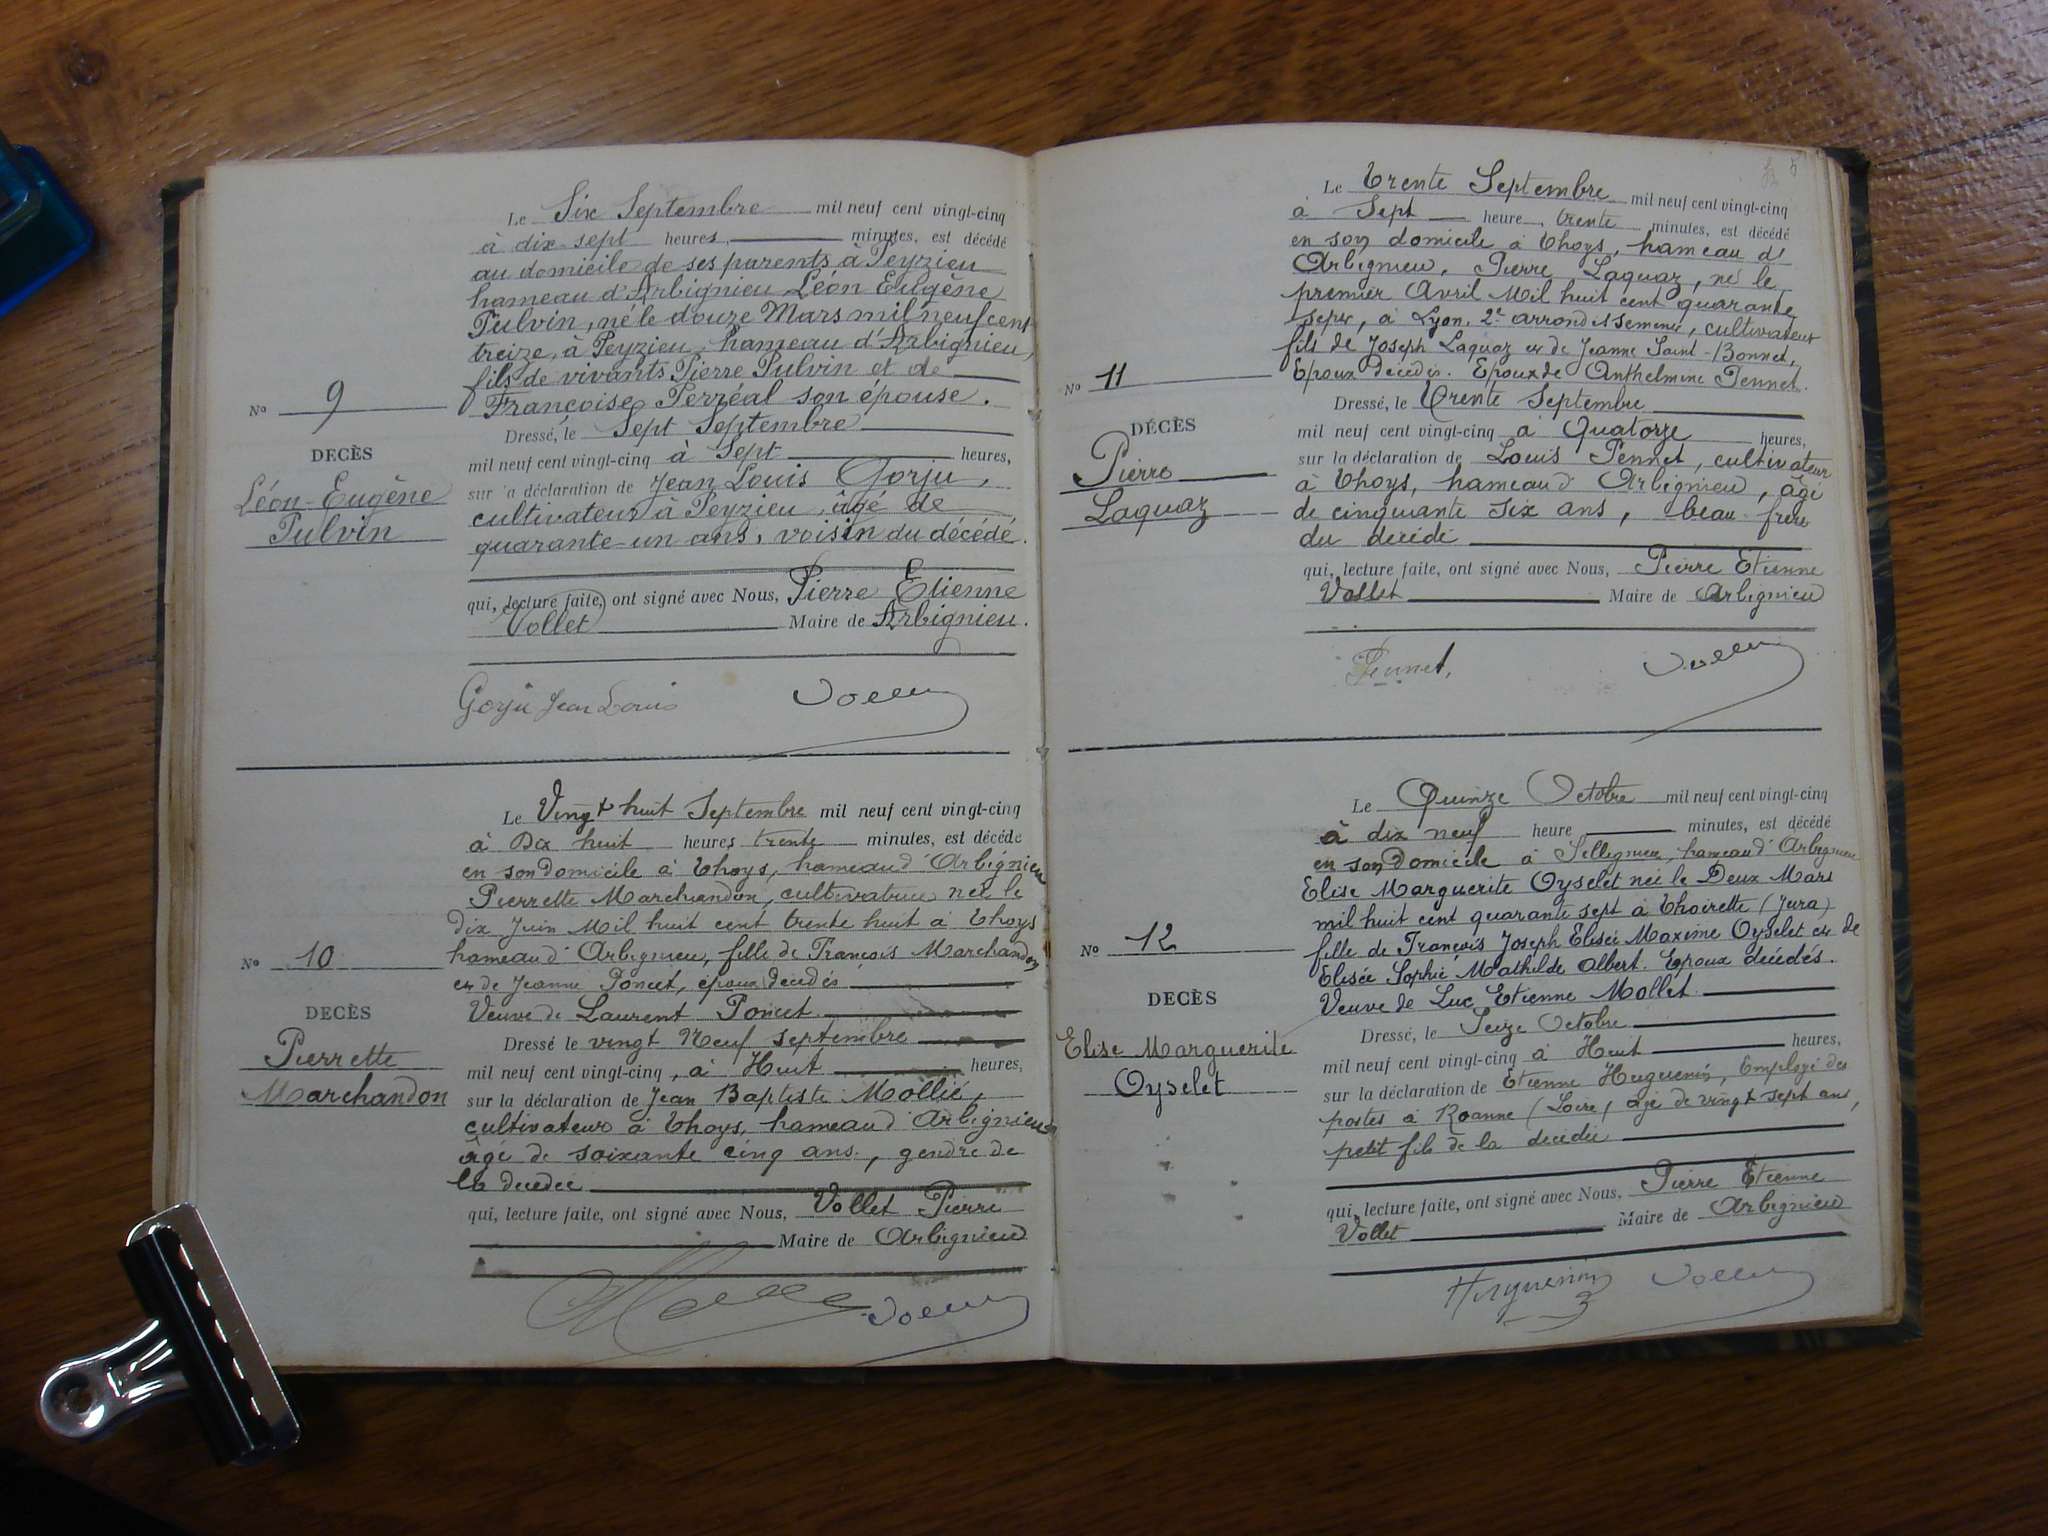 Le Six Septembre mil neuf cent vingt-cinq
à dix sept heures, minutes, est décédé
au domicile de ses parents à Peyzieu
hameau d'Arbignieu Léon Eugène
Pulvin, né le douze Mars mil neuf cent
treize, à Peyzieu, hameau d'Arbignieu,
fils de vivants Pierre Pulvin et de
Françoise Perréal son épouse.
No 9
DECÈS
Léon-Eugène
Pulvin
Dressé, le Sept Septembre
mil neuf cent vingt-cinq à Sept heures,
sur la déclaration de Jean Louis Gorju,
cultivateur à Peyzieu, âgé de
quarante-un ans, voisin du décédé.
qui, lecture faite, ont signé avec Nous, Pierre Etienne
Vollet Maire de Arbignieu.
Gorju Jean Louis Vollet
Le Vingt huit Septembre mil neuf cent vingt-cinq
à Dix huit heures trente minutes, est décédé
en son Domicile à Thoys, hameau d'Arbignieu
Pierrette Marchandon, cultivatrice née le
dix Juin Mil huit cent trente huit à Thoys
hameau d'Arbignieu, fille de François Marchandon
et de Jeanne Poncet, époux décédés
Veuve de Laurent Poncet
No 10
DECÈS
Pierrette
Marchandon
Dressé le vingt Neuf septembre
mil neuf cent vingt-cinq, à Huit heures,
sur la déclaration de Jean Baptiste Mollié,
cultivateur à Thoys, hameau d'Arbignieu
âgé de soixante cinq ans, gendre de
la décédée
qui, lecture faite, ont signé avec Nous, Vollet Pierre
Maire de Arbignieu
Vollet
5
Le Trente Septembre mil neuf cent vingt-cinq
à Sept heure, trente minutes, est décédé
en son domicile à Thoys, hameau de
Arbignieu, Pierre Laquaz, né le
premier Avril Mil huit cent quarante
sept, à Lyon, 2e arrondissement, cultivateur
fils de Joseph Laquaz et de Jeanne Saint-Bonnet,
Epoux décédés. Epoux de Anthelmine Pennet.
No 11
DÉCÈS
Pierre
Laquaz
Dressé, le Trente Septembre
mil neuf cent vingt-cinq à Quatorze heures,
sur la déclaration de Louis Pennet, cultivateur
à Thoys, hameau d'Arbignieu, âgé
de cinquante six ans, beau-frère
du décédé
qui, lecture faite, ont signé avec Nous, Pierre Etienne
Vollet Maire de Arbignieu
Pennet, Vollet
Le Quinze Octobre mil neuf cent vingt-cinq
à dix neuf heure minutes, est décédé
en son Domicile à Sillignieu, hameau d'Arbignieu
Elise Marguerite Oyselet née le Deux Mars
mil huit cent quarante sept à Thoirette (Jura)
fille de François Joseph Elisée Maxime Oyselet et de
Elisée Sophie Mathilde Albert. Epoux décédés.
Veuve de Luc Etienne Mollet
No 12
DECÈS
Elise Marguerite
Oyselet
Dressé, le Seize Octobre
mil neuf cent vingt-cinq à Huit heures,
sur la déclaration de Etienne Huguenin, Employé des
postes à Roanne (Loire, âgé de vingt sept ans,
petit fils de la décédée
qui, lecture faite, ont signé avec Nous, Pierre Etienne
Vollet Maire de Arbignieu
Huguenin Vollet